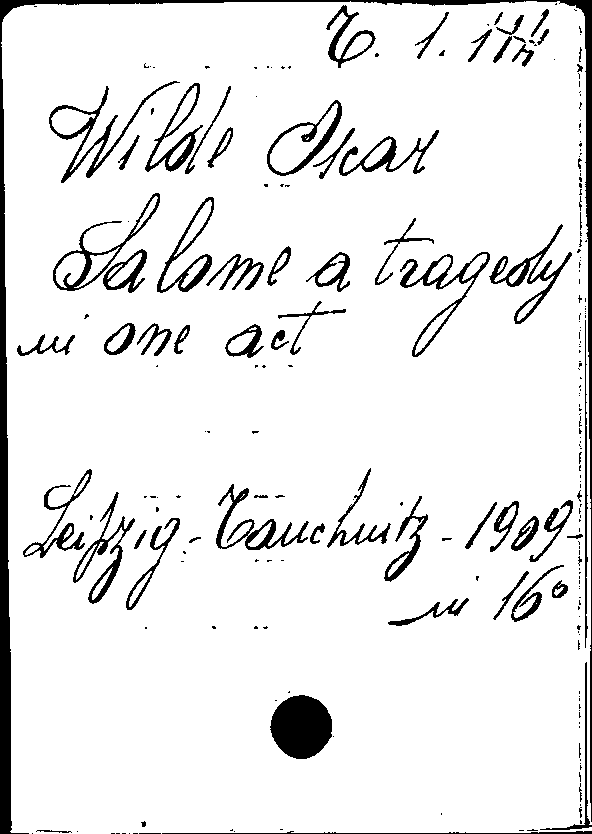 T. 1.
Wilde Oscar
Salome a tragedy
in one act
Leipzig - Tauchnitz - 1909 -
in 16°